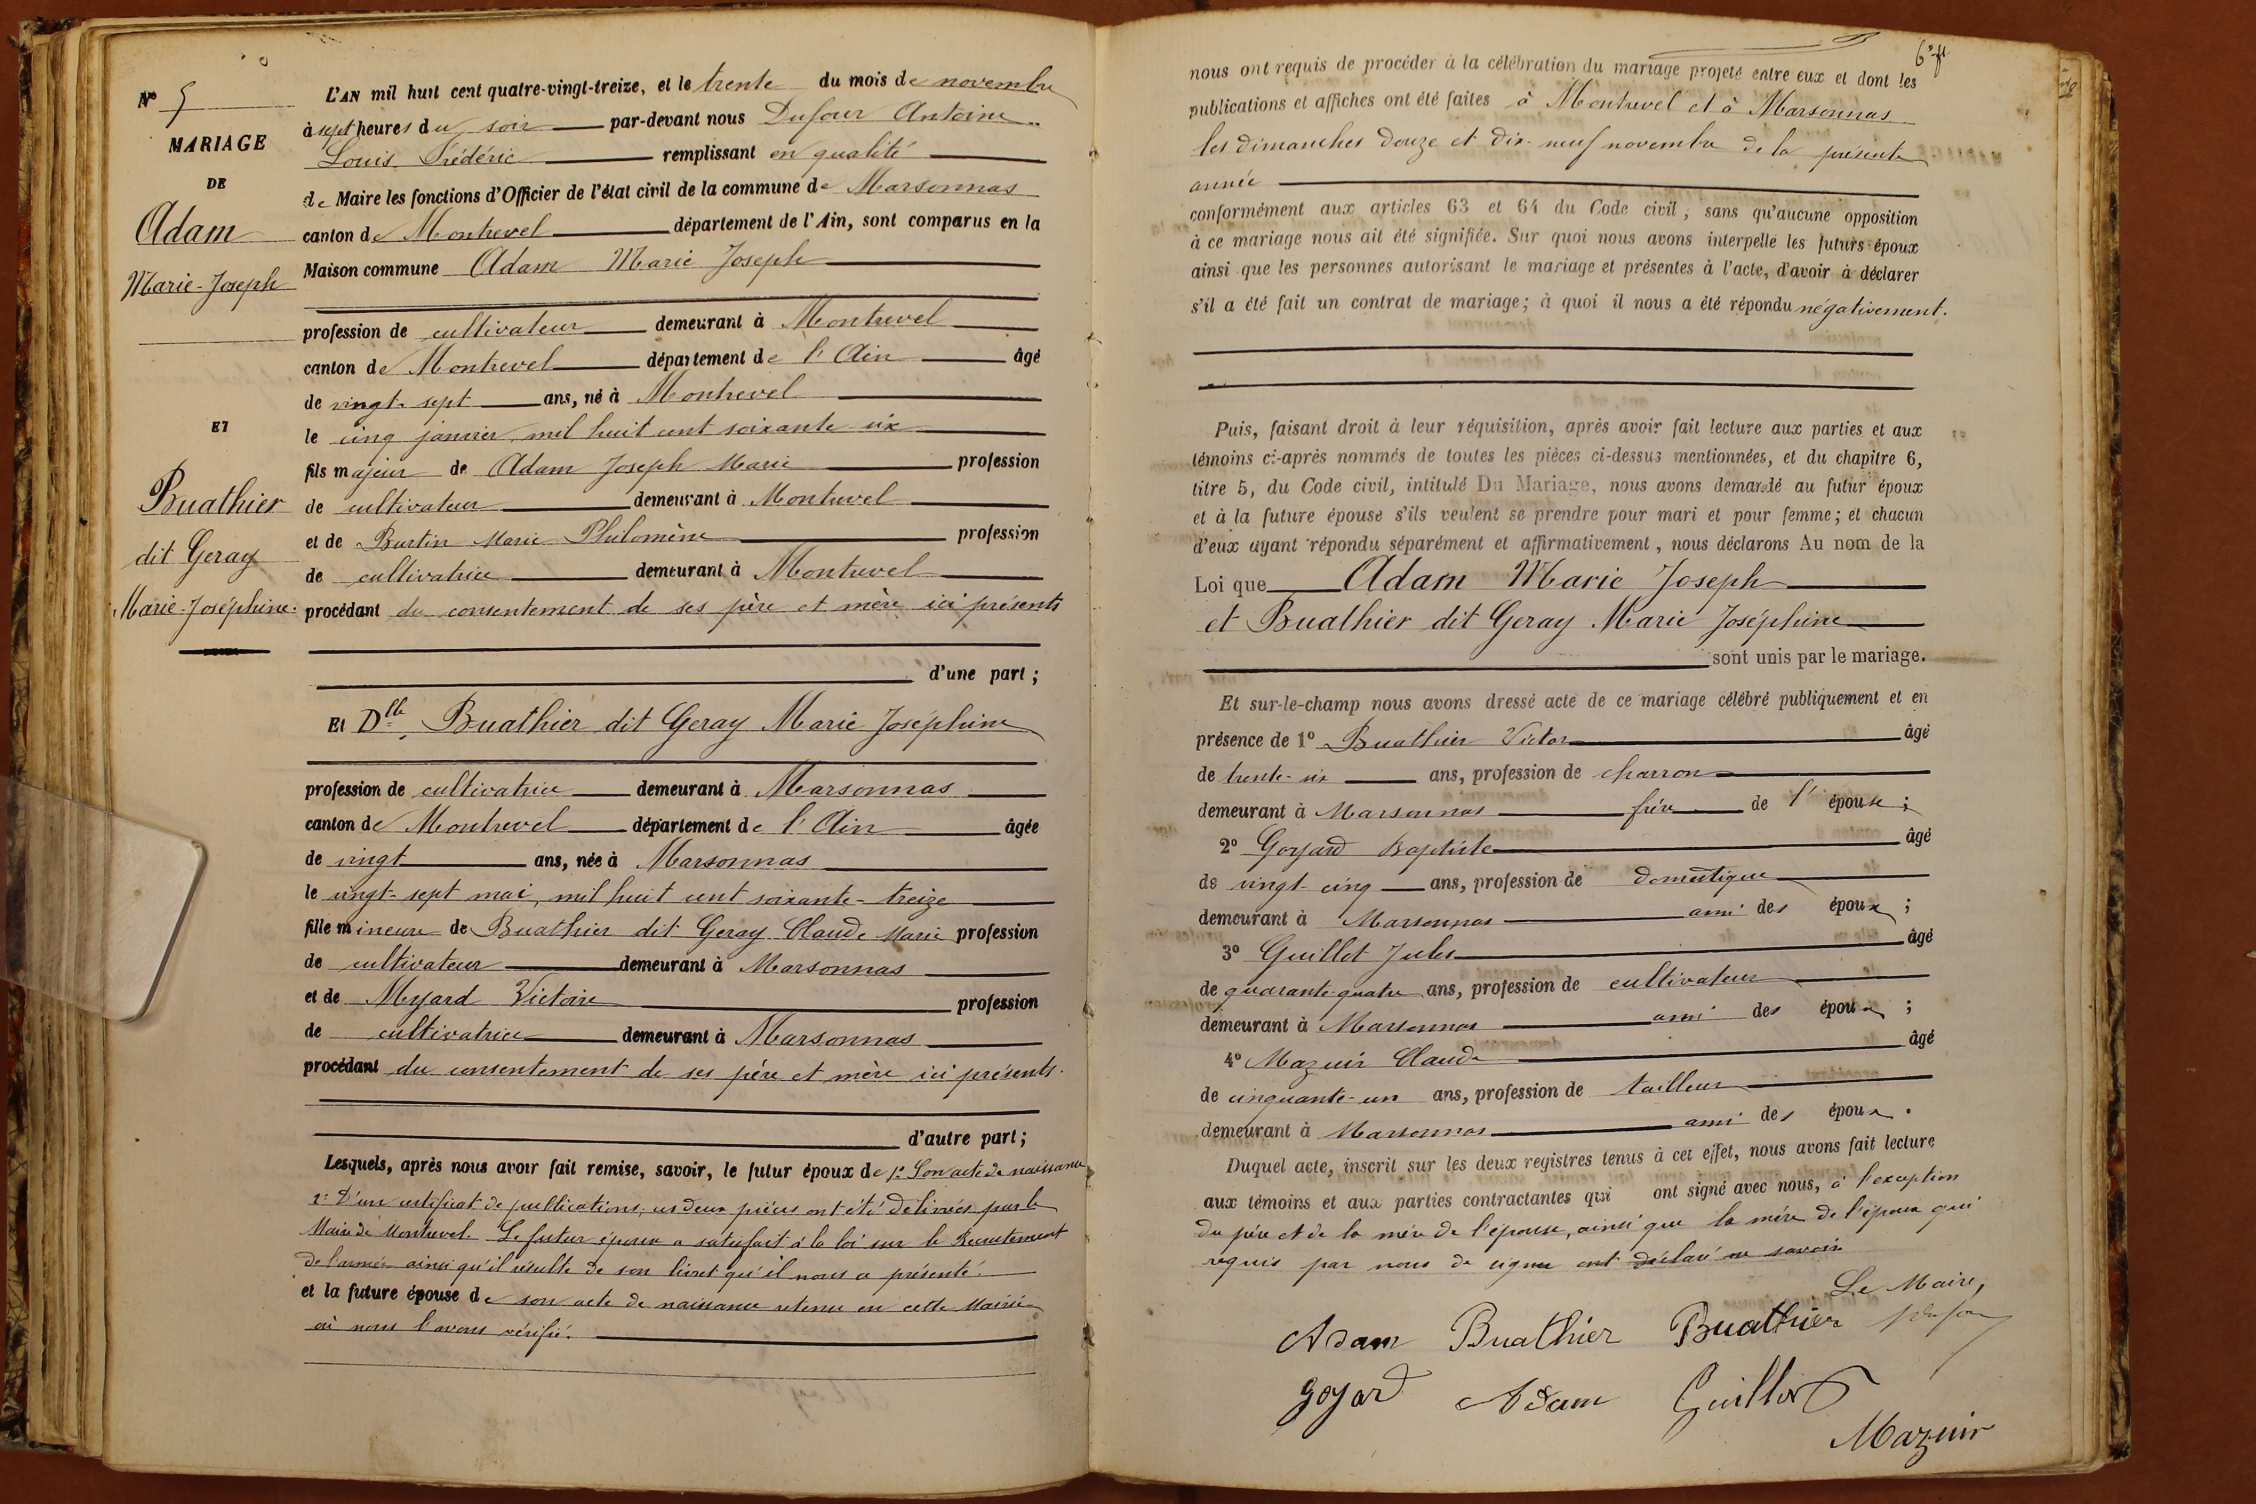 N° 5
MARIAGE
DE
Adam
Marie-Joseph
ET
Buathier
dit Geray
Marie-Joséphine.
L'AN mil huit cent quatre-vingt-treize, et le trente du mois de novembre
à sept heures du soir par-devant nous Dufour Antoine
Louis Frédéric remplissant en qualité
de Maire les fonctions d'Officier de l'état civil de la commune de Marsonnas
canton de Montrevel département de l'Ain, sont comparus en la
Maison commune Adam Marie Joseph
profession de cultivateur demeurant à Montrevel
canton de Montrevel département de l'Ain âgé
de vingt-sept ans, né à Montrevel
le cinq janvier mil huit cent soixante-six
fils majeur de Adam Joseph Marie profession
de cultivateur demeurant à Montrevel
et de Burtin Marie Philomène profession
de cultivatrice demeurant à Montrevel
procédant du consentement de ses père et mère ici présents
d'une part ;
Et Dlle Buathier dit Geray Marie Joséphine
profession de cultivatrice demeurant à Marsonnas
canton de Montrevel département de l'Ain âgée
de vingt ans, née à Marsonnas
le vingt-sept mai, mil huit cent soixante-treize
fille mineure de Buathier dit Geray Claude Marie profession
de cultivateur demeurant à Marsonnas
et de Myard Victoire profession
de cultivatrice demeurant à Marsonnas
procédant du consentement de ses père et mère ici présents.
d'autre part ;
Lesquels, après nous avoir fait remise, savoir, le futur époux de 1° Son acte de naissance
2° D'un certificat de publications, ces deux pièces ont été délivrées par le
Maire de Montrevel. Le futur époux a satisfait à la loi sur le Recrutement
de l'armée ainsi qu'il résulte de son livret qu'il nous a présenté.
et la future épouse de son acte de naissance retenu en cette Mairie
où nous l'avons vérifié.
nous ont requis de procéder à la célébration du mariage projeté entre eux et dont les
publications et affiches ont été faites à Montrevel et à Marsonnas
les dimanches douze et dix-neuf novembre de la présente
année
conformément aux articles 63 et 64 du Code civil, sans qu'aucune opposition
à ce mariage nous ait été signifiée. Sur quoi nous avons interpellé les futurs époux
ainsi que les personnes autorisant le mariage et présentes à l'acte, d'avoir à déclarer
s'il a été fait un contrat de mariage ; à quoi il nous a été répondu négativement.
Puis, faisant droit à leur réquisition, après avoir fait lecture aux parties et aux
témoins ci-après nommés de toutes les pièces ci-dessus mentionnées, et du chapitre 6,
titre 5, du Code civil, intitulé Du Mariage, nous avons demandé au futur époux
et à la future épouse s'ils veulent se prendre pour mari et pour femme ; et chacun
d'eux ayant répondu séparément et affirmativement, nous déclarons Au nom de la
Loi que Adam Marie Joseph
et Buathier dit Geray Marie Joséphine
sont unis par le mariage.
Et sur-le-champ nous avons dressé acte de ce mariage célébré publiquement et en
présence de 1° Buathier Victor âgé
de trente-six ans, profession de charron
demeurant à Marsonnas frère de l'épouse ;
2° Goyard Baptiste âgé
de vingt-cinq ans, profession de domestique
demeurant à Marsonnas ami des époux ;
3° Guillot Jules âgé
de quarante-quatre ans, profession de cultivateur
demeurant à Marsonnas ami des époux ;
4° Mazuir Claude âgé
de cinquante-un ans, profession de tailleur
demeurant à Marsonnas ami des époux.
Duquel acte, inscrit sur les deux registres tenus à cet effet, nous avons fait lecture
aux témoins et aux parties contractantes qui ont signé avec nous, à l'exception
du père et de la mère de l'épouse, ainsi que la mère de l'époux qui
requis par nous de signer ont déclaré ne savoir
Le Maire,
Adam Buathier Buathier Dufour
Goyard Adam Guillot
Mazuir